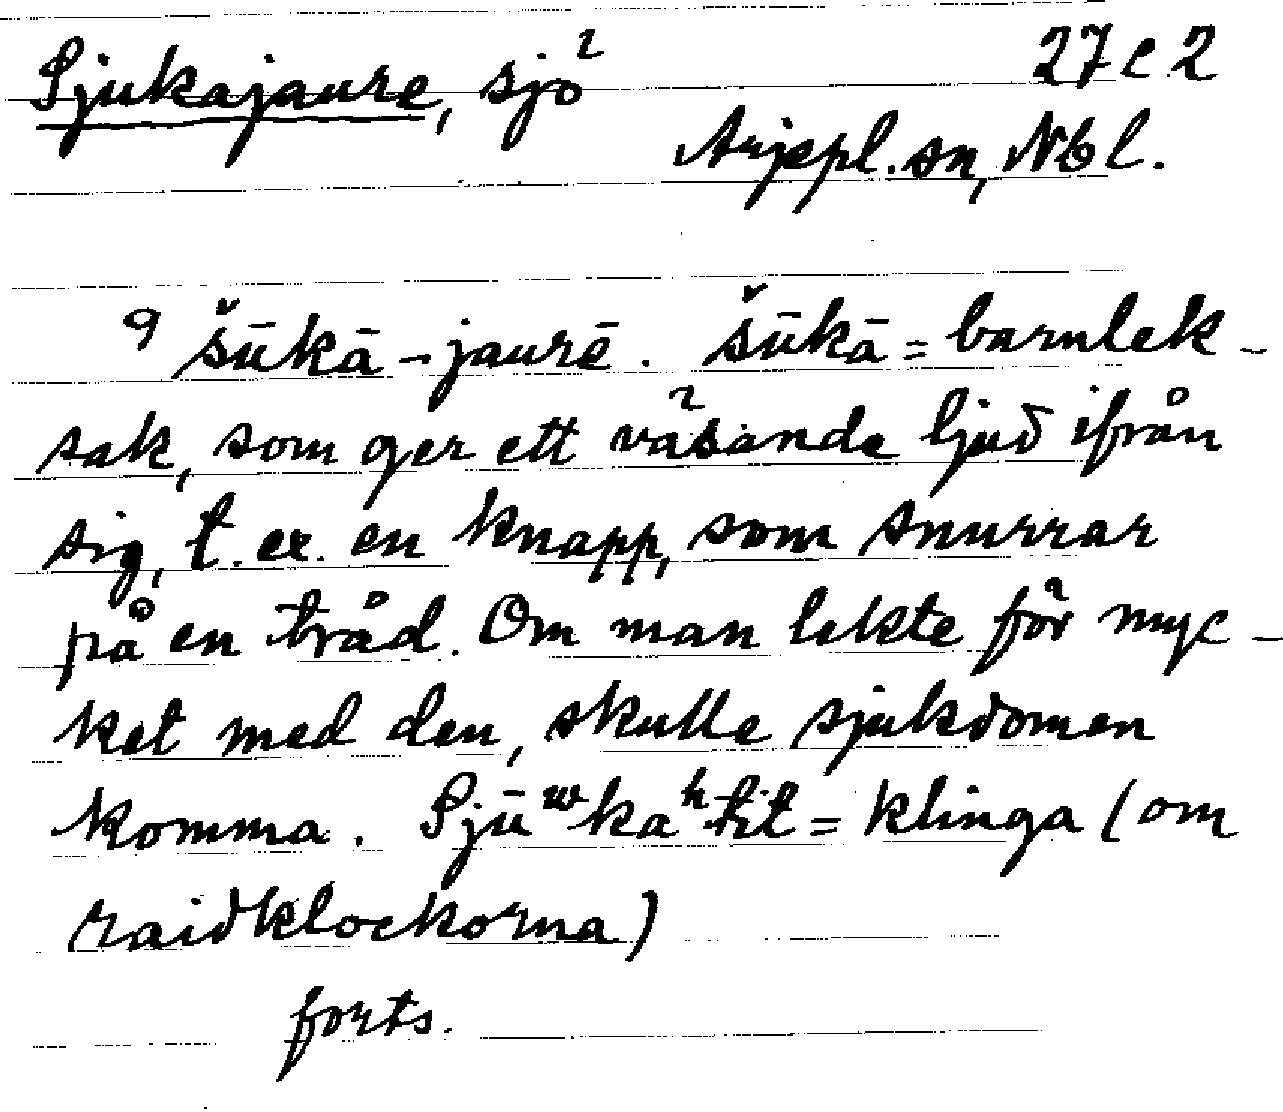 Sjukajaure, sjö 27 e 2
Arjepl. sn, Nbl.
9 šūkā-jaurē. šūkā = barnlek-
sak, som ger ett väsande ljud ifrån
sig, t. ex. en knapp, som snurrar
på en tråd. Om man lekte för myc-
ket med den, skulle sjukdomen
komma. Sjūʷkaʰtit = klinga (om
raidklockorna)
forts.